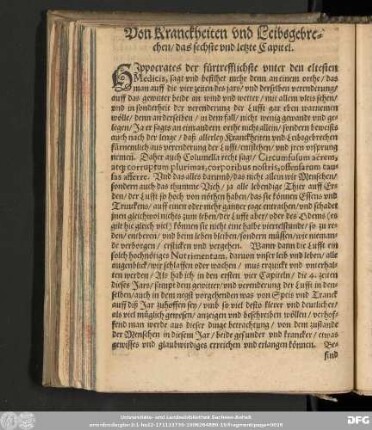 Von Kranckheiten vnd Leibsgebre-
chen/ das sechste vnd letzte Capitel.
Hippocrates der fürtrefflichste vnter den eltesten
Medicis, sagt vnd befihlet nicht denn an einem orthe/ das
man auff die vier zeiten des jars/ vnd derselben verenderung/
auff das gewitter beide an wind vnd wetter/ mit allem vleis sehen/
vnd in sonderheit der verenderung der Lufft gar eben warnemen
wölle/ denn an derselben/ in dem fall/ nicht wenig gewandt vnd ge-
legen/ Ja er sagts an einem andern orthe nicht allein/ sondern beweists
auch nach der lenge/ daß allerley Kranckheiten vnd Leibsgebrechen
fürnemlich aus verenderung der Lufft/ entstehen/ vnd jren vrsprung
nemen. Daher auch Columella recht sagt/ Circumfusum aerem,
aeque corruptum plurimas, corporibus nostris, offensarum cau-
sas afferre. Vnd das alles darumb/ das nicht allein wir Menschen/
sondern auch das thumme Vieh/ ja alle lebendige Thier auff Er-
den/ der Lufft so hoch von nöthen haben/ das sie können Essens vnd
Trinckens/ auff einen oder nicht gantzer tage entrathen/ vnd schadet
jnen gleichwol nichts zum leben/ der Lufft aber/ oder des Odems (es
gehe hie gleich wie) können sie nicht eine halbe viertelstunde/ so zu re-
den/ entberen/ vnd beim leben bleiben/ sondern müssen/ wie nieman-
de verborgen/ ersticken vnd vergehen. Wann dann die Lufft ein
solch hochnötiges Nutrimentum, daruon vnser leib vnd leben/ alle
augenblick/ wir schlaffen oder wachen/ mus erquickt vnd vnterhal-
ten werden/ Als hab ich in den ersten vier Capiteln/ die 4. zeiten
dieses Jars/ sampt dem gewitter/ vnd verenderung der Lufft in den-
selben/ auch in dem negst vorgehenden was von Speis vnd Tranck
auff diß Jar zuhoffen sey/ vmb so viel desto klerer vnd deutlicher/
als viel müglich gewesen/ anzeigen vnd beschreiben wöllen/ verhof-
fend man werde aus dieser dinge betrachtung/ von dem zustande
der Menschen in diesem Jar/ beide gesunder vnd krancker/ etwas
gewisses vnd glaubwirdiges erreichen vnd erlangen können. Be-
find
Universitäts- und Landesbibliothek Sachsen-Anhalt
DFG